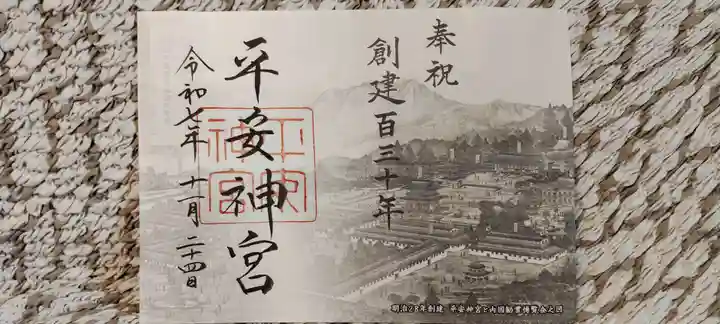 奉祝
創建百三十年
平安神宮
平安神宮
令和七年 十一月 二十四日
明治28年創建 平安神宮と内国勧業博覧会之図